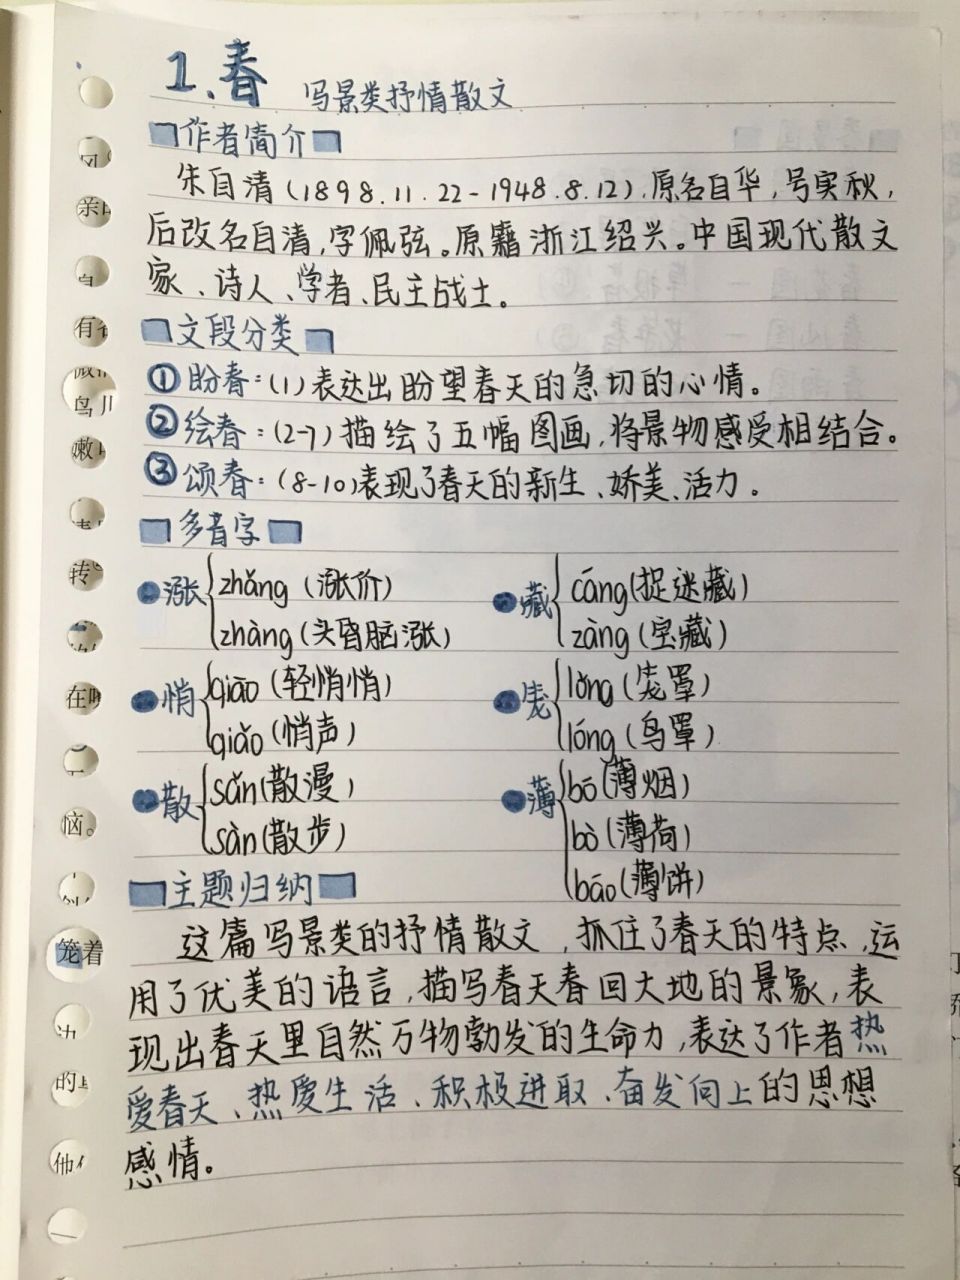 1.春 写景类抒情散文
作者简介
朱自清(1898.11.22-1948.8.12),原名自华,号实秋,
后改名自清,字佩弦。原籍浙江绍兴。中国现代散文
家、诗人、学者、民主战士。
文段分类
①盼春:(1)表达出盼望春天的急切的心情。
②绘春:(2-7)描绘了五幅图画,将景物感受相结合。
③颂春:(8-10)表现了春天的新生、娇美、活力。
多音字
涨 zhǎng(涨价) 藏 cáng(捉迷藏)
zhàng(头昏脑涨) zàng(宝藏)
悄 qiāo(轻悄悄) 笼 lǒng(笼罩)
qiǎo(悄声) lóng(鸟罩)
散 sǎn(散漫) 薄 bō(薄烟)
sàn(散步) bò(薄荷)
báo(薄饼)
主题归纳
这篇写景类的抒情散文,抓住了春天的特点,运
用了优美的语言,描写春天春回大地的景象,表
现出春天里自然万物勃发的生命力,表达了作者热
爱春天、热爱生活、积极进取、奋发向上的思想
感情。
亲
有
鸟
嫩
转
在
恼。
笼着
的
他